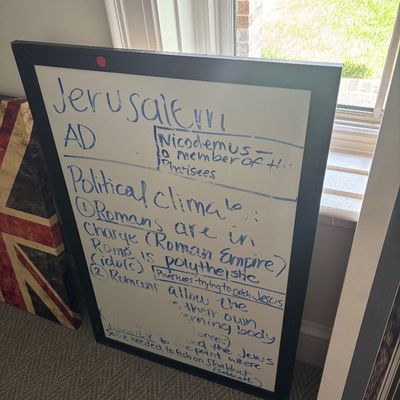 Jerusalem
AD
Nicodemus -
a member of the
Pharisees
Political climate:
① Romans are in
charge (Roman Empire)
Rome is polytheistic
(idols)
Pharisees trying to catch Jesus
② Romans allow the
their own
body
the Jews
to point where
needed to fish on Shabbat